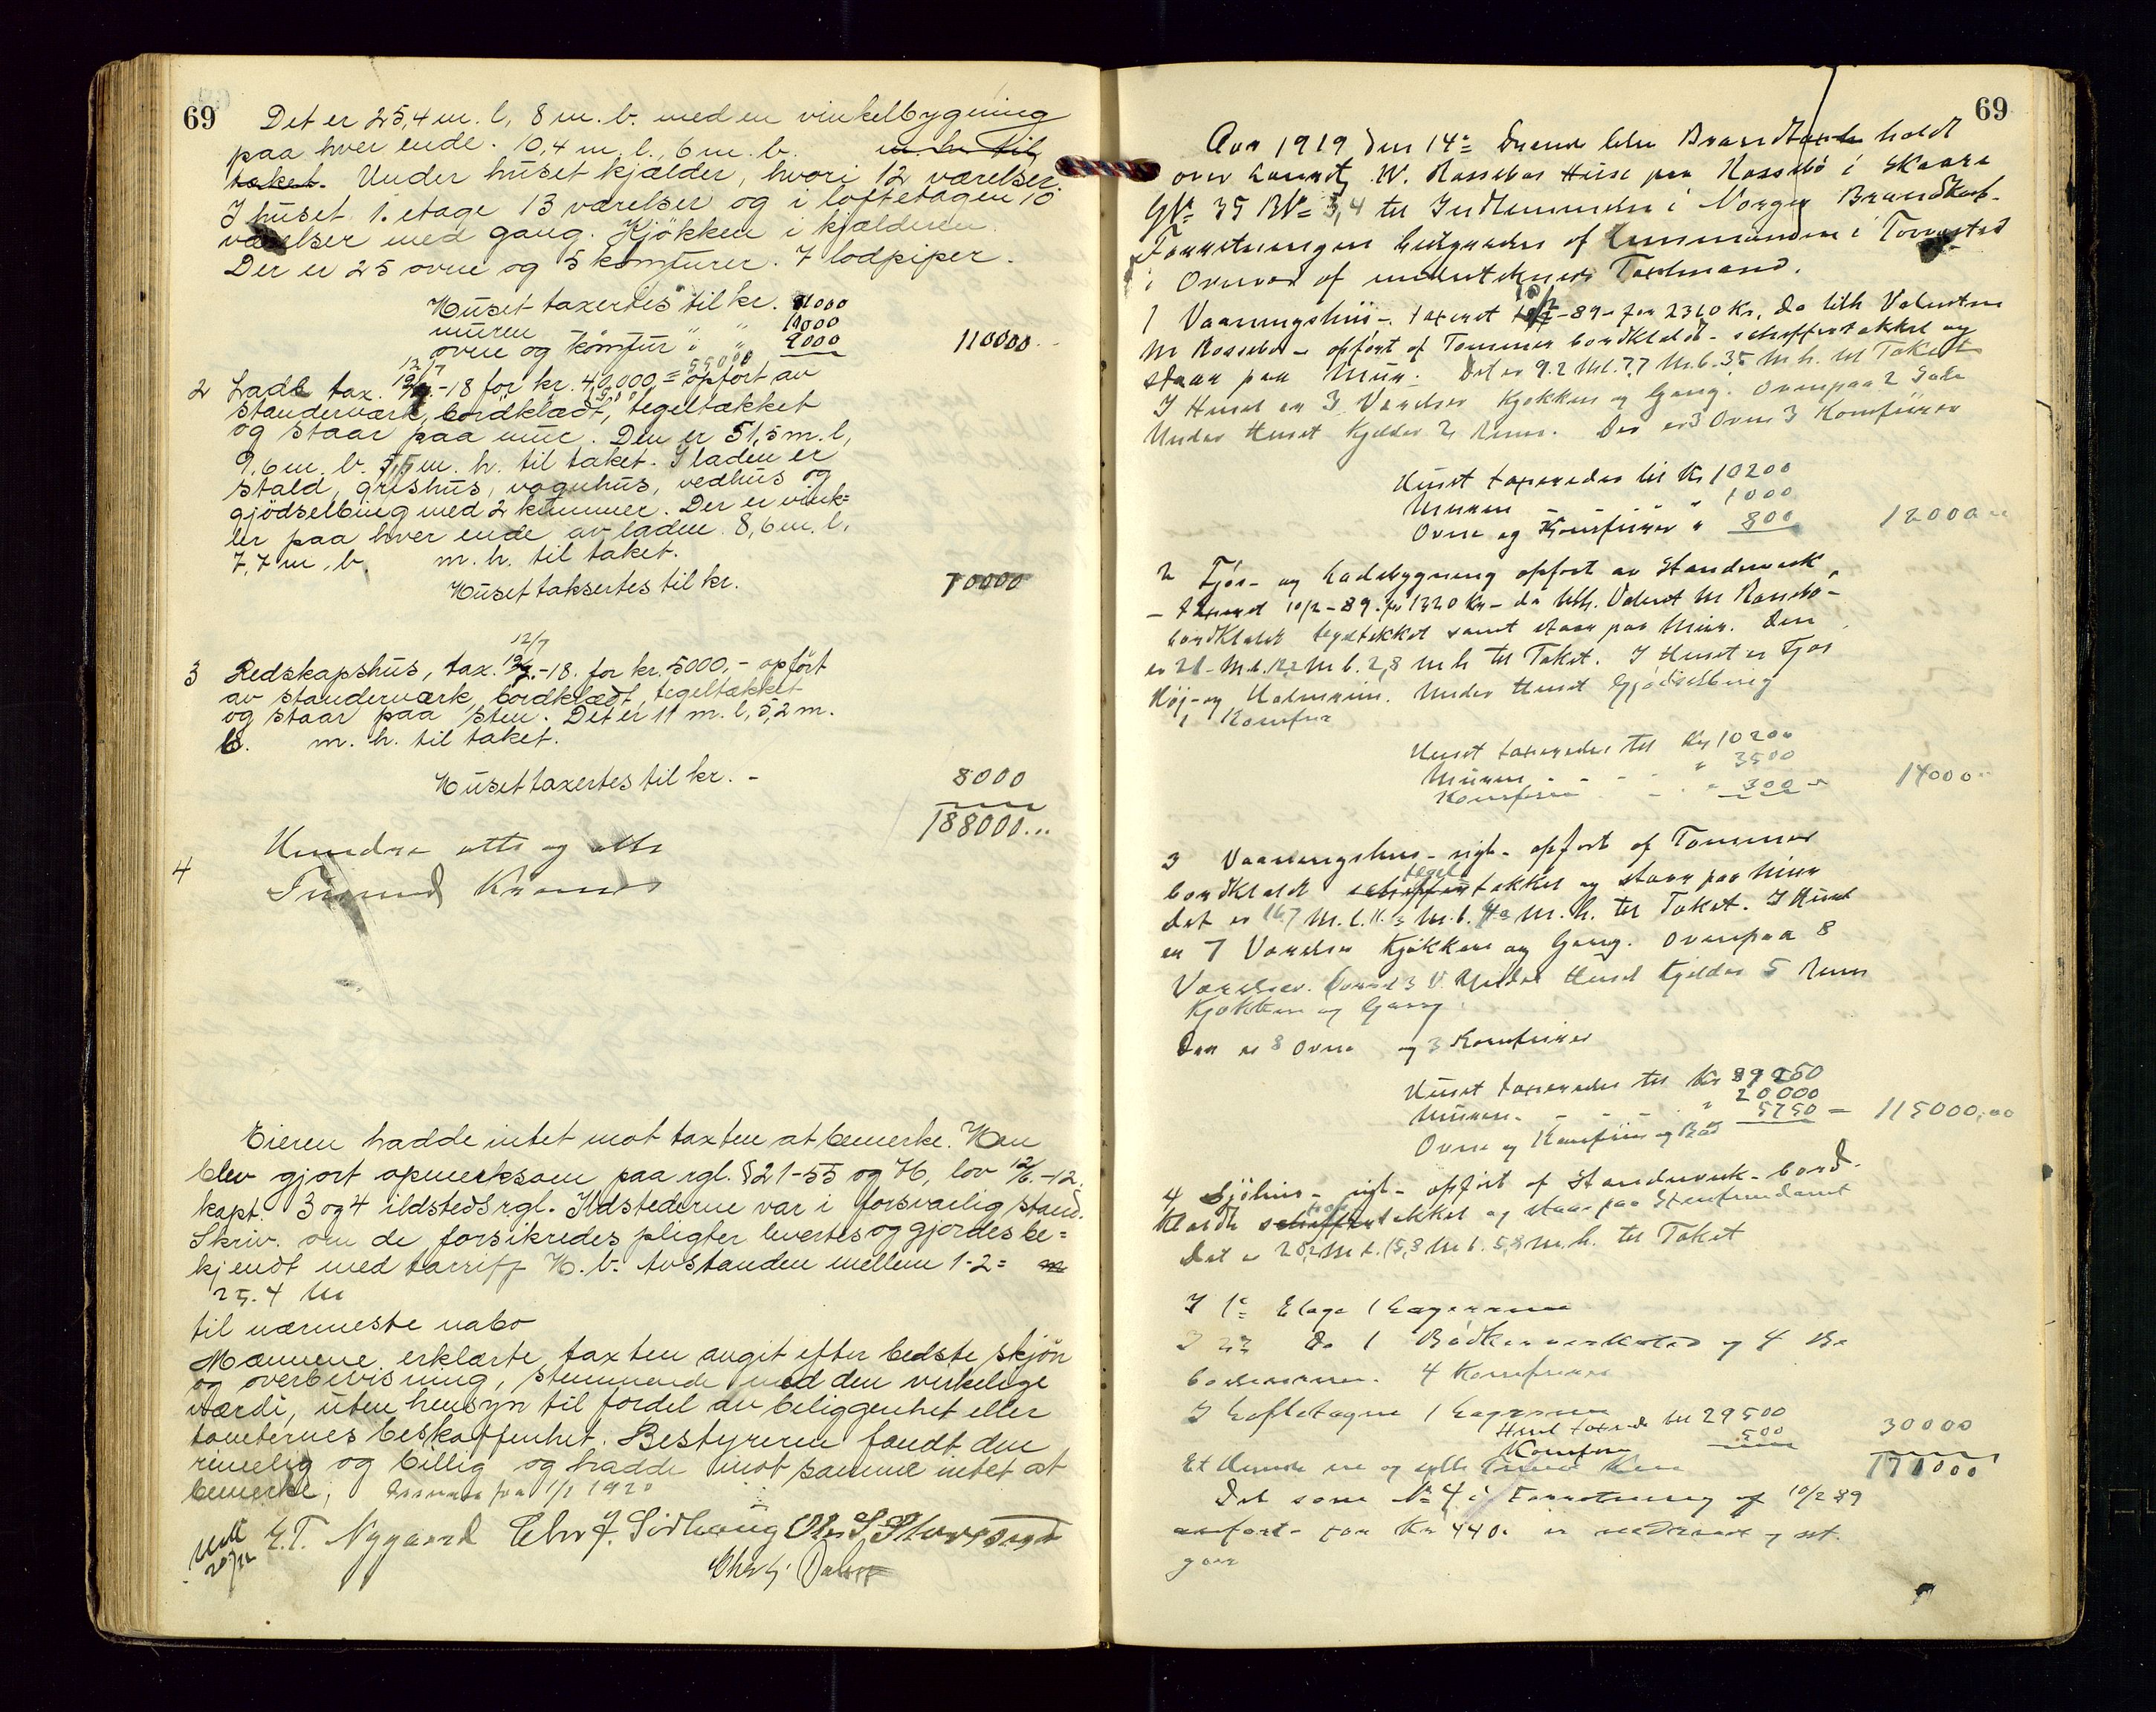 69
Det er 25,4 m. l, 8 m. b. med en vinkelbygning
paa hver ende. 10,4 m. l., 6 m. b. m. h. til
taket. Under huset kjælder, hvori 12 værelser.
I huset 1. etage 13 værelser og i loftetagen 10
værelser med gang. Kjökken i kjælderen.
Der er 25 ovne og 5 komfurer. 7 lodpiper.
Huset taxertes til kr. 91000
muren " " " 11000
ovne og komfur " " 9000 110000
2 Lade tax. 12/7-18 for kr. 40,000,= opfört av
55000
standerværk, bordklædt, tegeltækket
og staar paa mur. Den er 51,5 m. l,
9,6 m. b. 5,5 m. h. til taket. I laden er
stald, grishus, vognhus, vedhus og
gjödselbing med 2 kummer. Der er vink=
ler paa hver ende av laden. 8,6 m. l,
7,7 m. b. m. h. til taket.
Huset taksertes til kr. 70000
12/7
3 Redskapshus, tax. -18. for kr. 5000,- opfört
av standerværk, bordklædt, tegeltækket
og staar paa sten. Det er 11 m. l, 5,2 m.
b. m. h. til taket.
Huset taxertes til kr. - 8000
188000...
Hundre otti og otte
4 Tusend Kroner
Eieren hadde intet mot taxten at bemerke. Han
blev gjort opmerksom paa rgl. § 21-55 og 76, lov 12/6.-12.
kapt. 3 og 4 ildstedsrgl. Ildstederne var i forsvarlig stand.
Skriv. om de forsikredes pligter levertes og gjordes be=
kjendt med tarriff H. b. Avstanden mellem 1-2=
25.4 M
til nærmeste nabo
Mænnene erklærte taxten avgit efter bedste skjön
og overbevisning, stemmende med den virkelige
værdi, uten hensyn til fordel av beliggenhet eller
tomternes beskaffenhet. Bestyreren fandt den
rimelig og billig og hadde imot samme intet at
bemerke, fra 1/1 1920
E. T. Nygaard Chr J. Sörhaug
69
Aar 1919 den 14= blev Brandtaxt holdt
over W. Rossebøs Huse paa Rossebö i Skaare
GN= 35 BN= 3,4 til Indlemmelse i Norges Brandkas.
Forretningen af Lensmanden i Torvastad
i Overvær af undertegnede Taxtmænd.
1 Vaaningshus - taxeret 10/2-89- for 2310 Kr, da tilh Valentin
M Rossebø - opført af Tømmer bordklædt - skiffertækket og
staar paa Mur. Det er 9.2 M l. 7,7 M. b. 35 M h. til Taket
I Huset er 3 Værelser Kjøkken og Gang. Ovenpaa 2 Sale
Under Huset Kjelder 2 Rum. Der er 3 Ovne 3 Komfürer
Huset taxeredes til Kr 10200
Muren " 1000
Ovne og Komfürer " 800 12000
2 Fjøs- og Ladebygning opført av Standerverk
- taxeret 10/2-89- for 1320 Kr- da tilh. Valent M Rossebø-
bordklædt tegeltekket samt staar paa Mur. Den
er 21- M. l. 12,2 M b. 2,8 M h til Taket. I Huset er Fjøs
Høj- og Halmrum. Under Huset Gjødselbing
1 Komfur
Huset taxeredes til Kr 10200
Muren - - - " 3500
Komfuren - - " 300 14000
3 Vaaningshus - nyt - opfört af Tømmer
tegel
bordklædt skiffertækket og staar paa Mur
Det er 16,7 M. l. M. b. M. h. til Taket. I Huset
er 7 Værelser Kjøkken og Gang. Ovenpaa 8
Værelser. Under Huset Kjelder 5 Rum
Kjøkken og Gang
Der er 8 Ovne og 3 Komfurer
Huset taxeredes til Kr 89250
Muren - - - " 20000
Ovne og Komfür og Bad 5750 = 115000,00
4 Sjöhus - nyt - opfört af Standerverk - bord-
klædt skiffertækket og staar paa Stenfundament
Det er 25,2 M l. 15,8 M b. 5,8 M. h. til Taket
I 1= Etage 1 Lagerrum
I 2= do 1 Bödkerverksted og 4
4 Komfurer
I Loftetagen 1 Lagerrum
Huset taxeredes til 29500
Komfurer 500 30000
Et Hundre en og sytti Tusend Kroner 171000
Det som N= 4 i Forretning af 10/2 89
anført - for Kr 440. er nedrevet og ut-
gaar